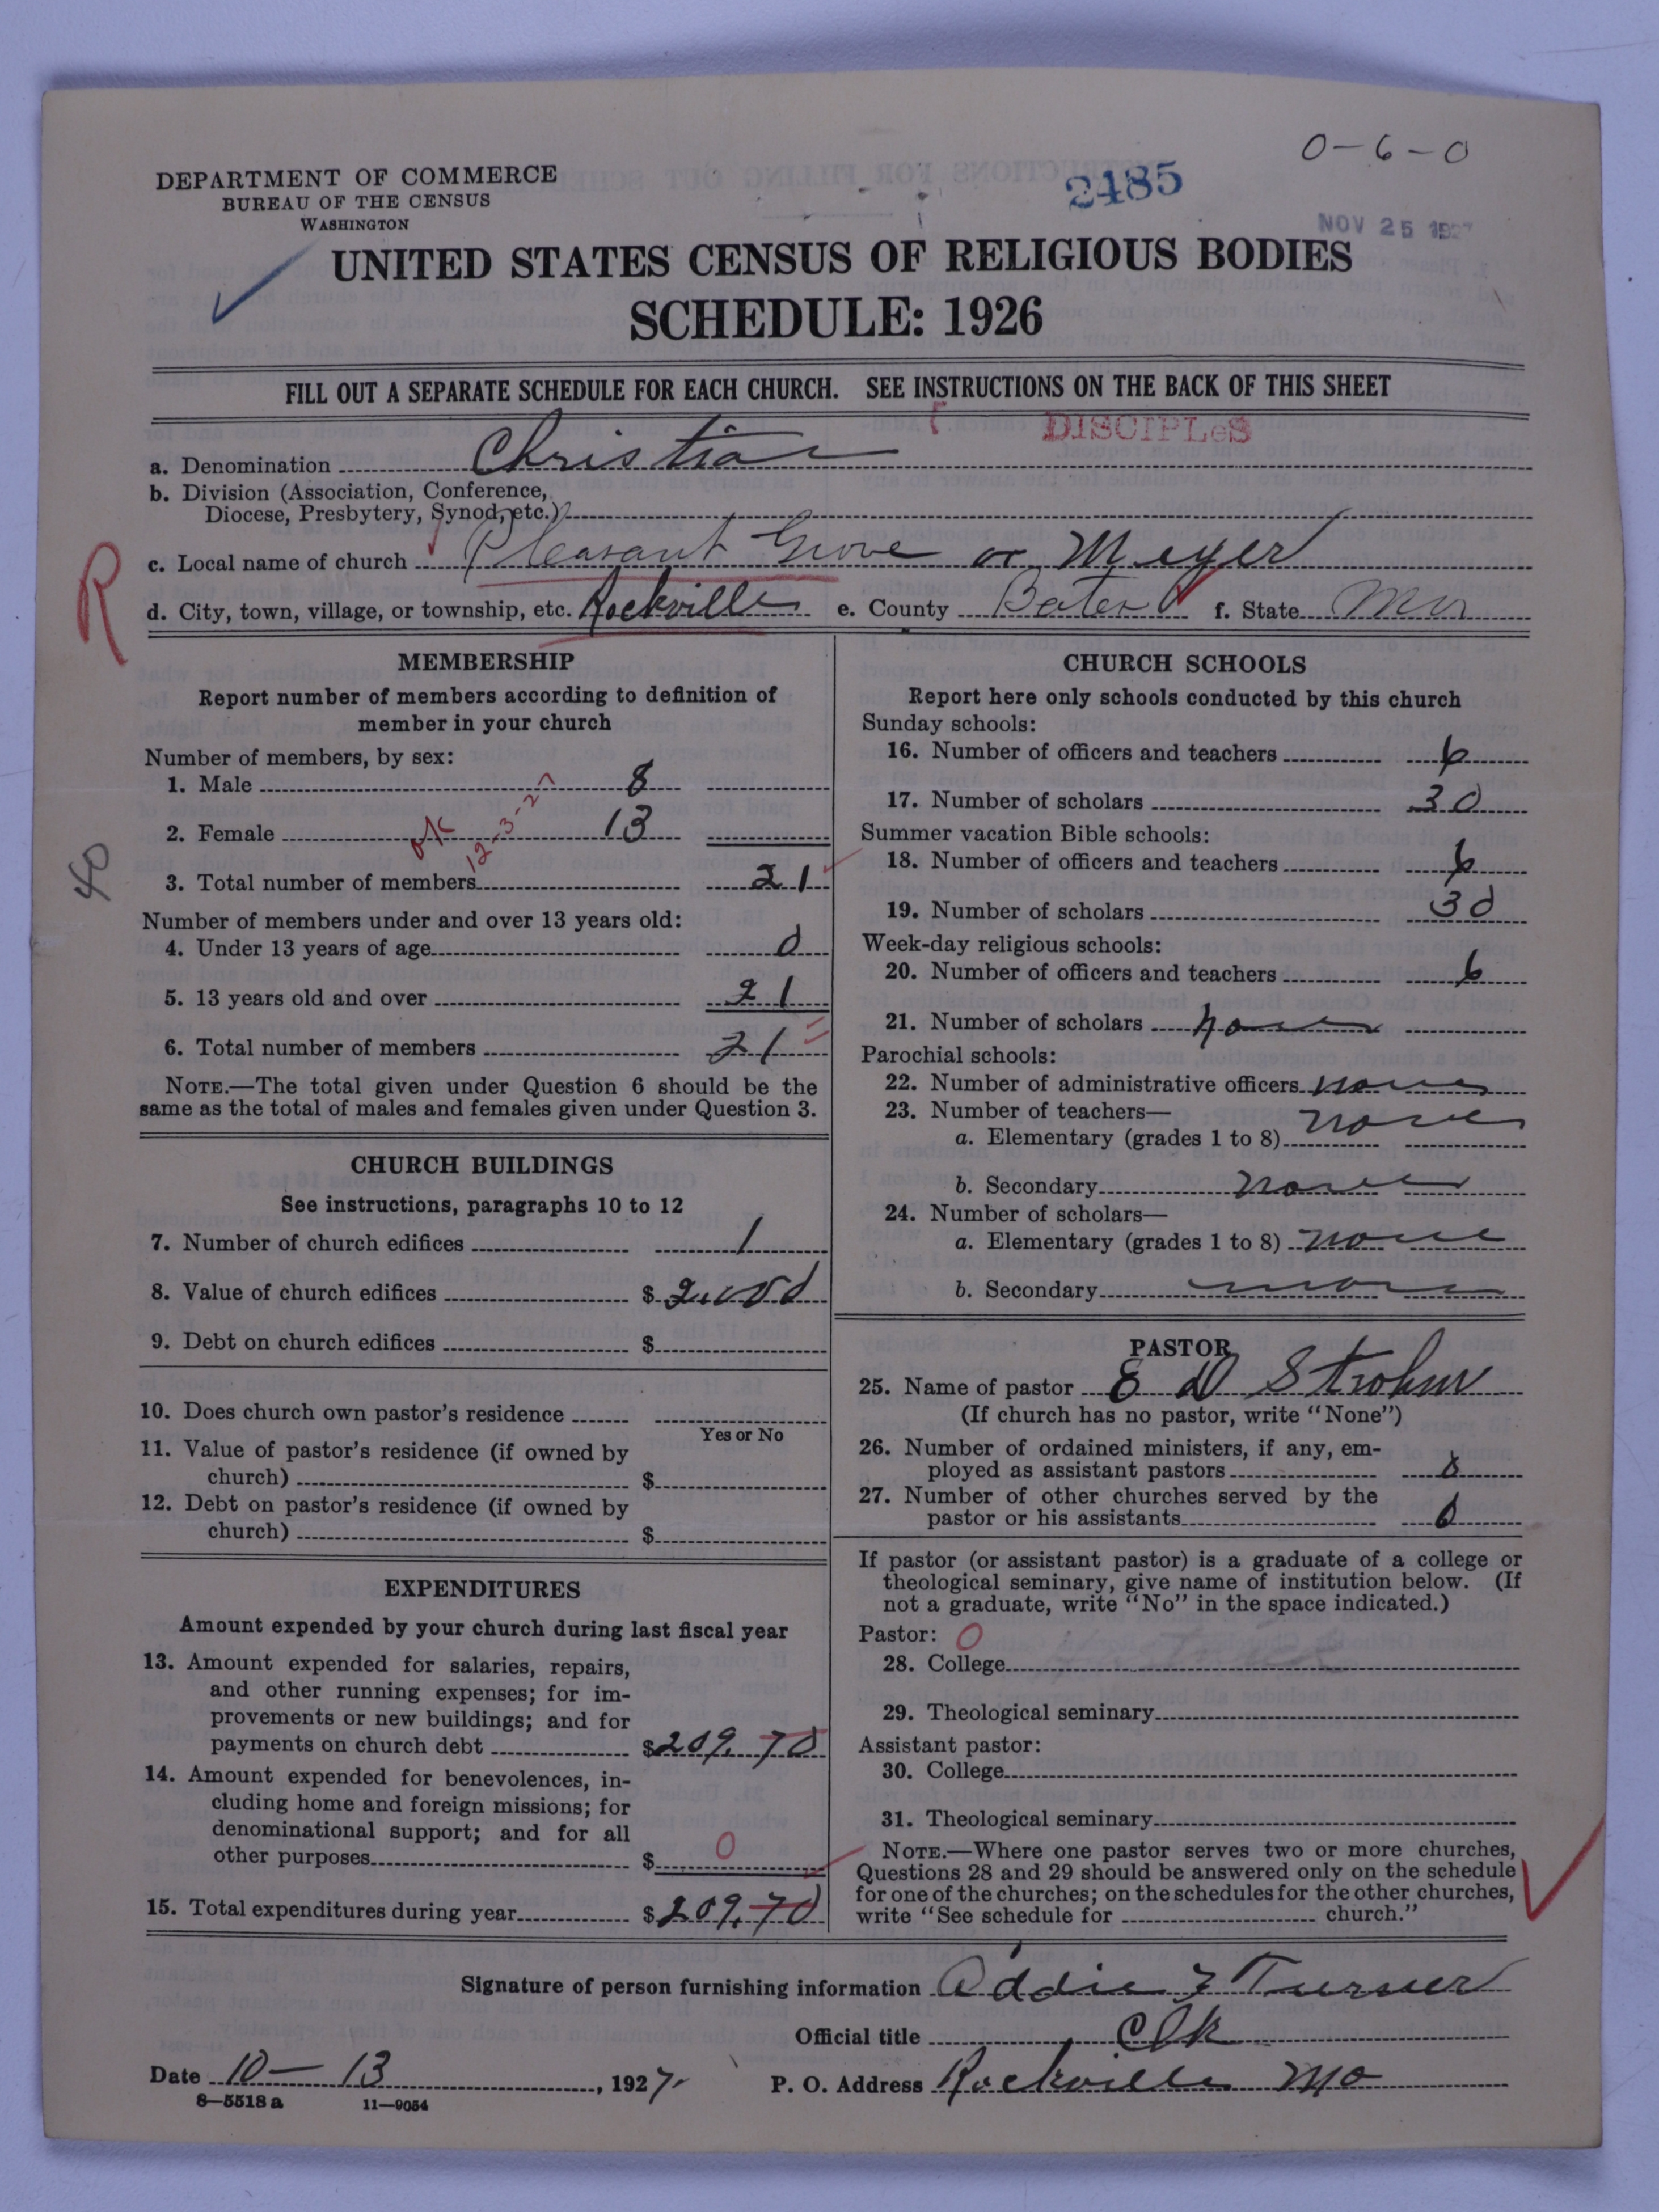 0-6-0
DEPARTMENT OF COMMERCE
BUREAU OF THE CENSUS
WASHINGTON
2485
NOV 25 1927
UNITED STATES CENSUS OF RELIGIOUS BODIES
SCHEDULE: 1926
FILL OUT A SEPARATE SCHEDULE FOR EACH CHURCH. SEE INSTRUCTIONS ON THE BACK OF THIS SHEET
DISCIPLeS
a. Denomination Christian
b. Division (Association, Conference,
Diocese, Presbytery, Synod, etc.)
c. Local name of church Pleasant Grove or Meyer
R
d. City, town, village, or township, etc. Rockville e. County Bates f. State Mo
MEMBERSHIP
Report number of members according to definition of
member in your church
Number of members, by sex:
1. Male 8
2. Female 13
OK 12-3-27
3. Total number of members 21
40
Number of members under and over 13 years old:
4. Under 13 years of age 0
5. 13 years old and over 21
6. Total number of members 21
NOTE.—The total given under Question 6 should be the
same as the total of males and females given under Question 3.
CHURCH BUILDINGS
See instructions, paragraphs 10 to 12
7. Number of church edifices 1
8. Value of church edifices $
9. Debt on church edifices $
10. Does church own pastor's residence
Yes or No
11. Value of pastor's residence (if owned by
church) $
12. Debt on pastor's residence (if owned by
church) $
EXPENDITURES
Amount expended by your church during last fiscal year
13. Amount expended for salaries, repairs,
and other running expenses; for im-
provements or new buildings; and for
payments on church debt $209.70
14. Amount expended for benevolences, in-
cluding home and foreign missions; for
denominational support; and for all
other purposes $ 0
15. Total expenditures during year $209.70
CHURCH SCHOOLS
Report here only schools conducted by this church
Sunday schools:
16. Number of officers and teachers 6
17. Number of scholars 30
Summer vacation Bible schools:
18. Number of officers and teachers 6
19. Number of scholars 30
Week-day religious schools:
20. Number of officers and teachers 6
21. Number of scholars none
Parochial schools:
22. Number of administrative officers none
23. Number of teachers—
a. Elementary (grades 1 to 8) none
b. Secondary none
24. Number of scholars—
a. Elementary (grades 1 to 8) none
b. Secondary none
PASTOR
25. Name of pastor E D Strohm
(If church has no pastor, write "None")
26. Number of ordained ministers, if any, em-
ployed as assistant pastors 0
27. Number of other churches served by the
pastor or his assistants 6
If pastor (or assistant pastor) is a graduate of a college or
theological seminary, give name of institution below. (If
not a graduate, write "No" in the space indicated.)
Pastor: O
28. College
29. Theological seminary
Assistant pastor:
30. College
31. Theological seminary
NOTE.—Where one pastor serves two or more churches,
Questions 28 and 29 should be answered only on the schedule
for one of the churches; on the schedules for the other churches,
write "See schedule for church."
Signature of person furnishing information Addie F Turner
Official title Clk
Date 10-13, 1927. P. O. Address Rockville Mo
8-5518 a 11-9054